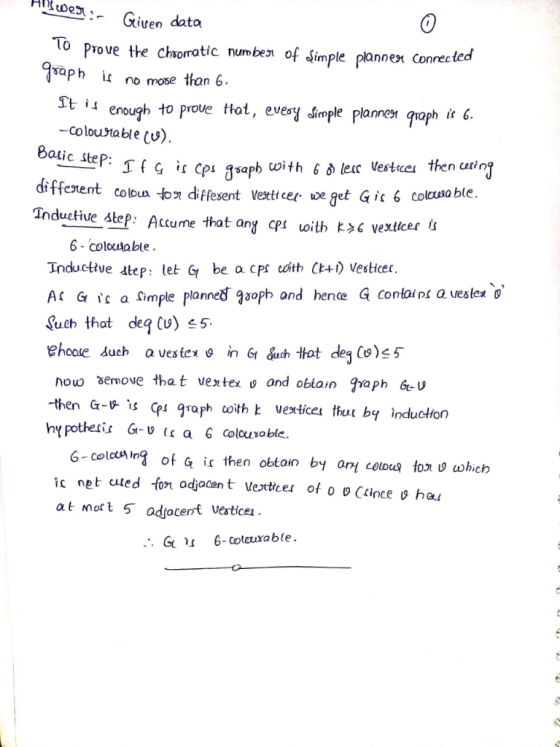 Answer :- Given data ①
To prove the chromatic number of simple planner connected
graph is no more than 6.
It is enough to prove that, every simple planner graph is 6.
-colourable (v).
Basic step: If G is cps graph with 6 or less vertices then using
different colour for different vertices. we get G is 6 colourable.
Inductive step: Assume that any cps with k≥6 vertices is
6-colourable.
Inductive step: let G be a cps with (k+1) vertices.
As G is a simple planned graph and hence G contains a vertex 'v'
Such that deg (v) ≤5.
Choose such a vertex v in G such that deg (v) ≤5
now remove that vertex v and obtain graph G-v
then G-v is cps graph with k vertices thus by induction
hypothesis G-v is a 6 colourable.
6-colouring of G is then obtain by any colour for v which
is not used for adjacent vertices of v (since v has
at most 5 adjacent vertices.
∴ G is 6-colourable.